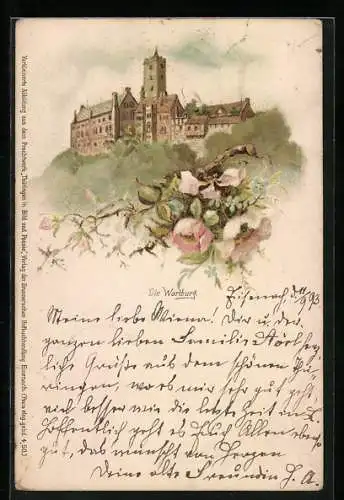 Verkleinerte Abbildung aus dem Prachtwerk „Thüringen in Bild und Poesie“, Verlag der Hofbuchhandlung Eisenach. (Preis eleg. gebd. 4,50.)
Die Wartburg.
Eisenach d. 11/9 93
Meine liebe Wiena! Dir u. der
ganzen lieben Familie herz
liche Grüße aus dem schönen Thü
ringen, wo es mir sehr gut geht,
viel besser wie die letzte Zeit in L.
Hoffentlich geht es Euch Allen ebenso
gut, das wünscht von Herzen
Deine alte Freundin J. A.